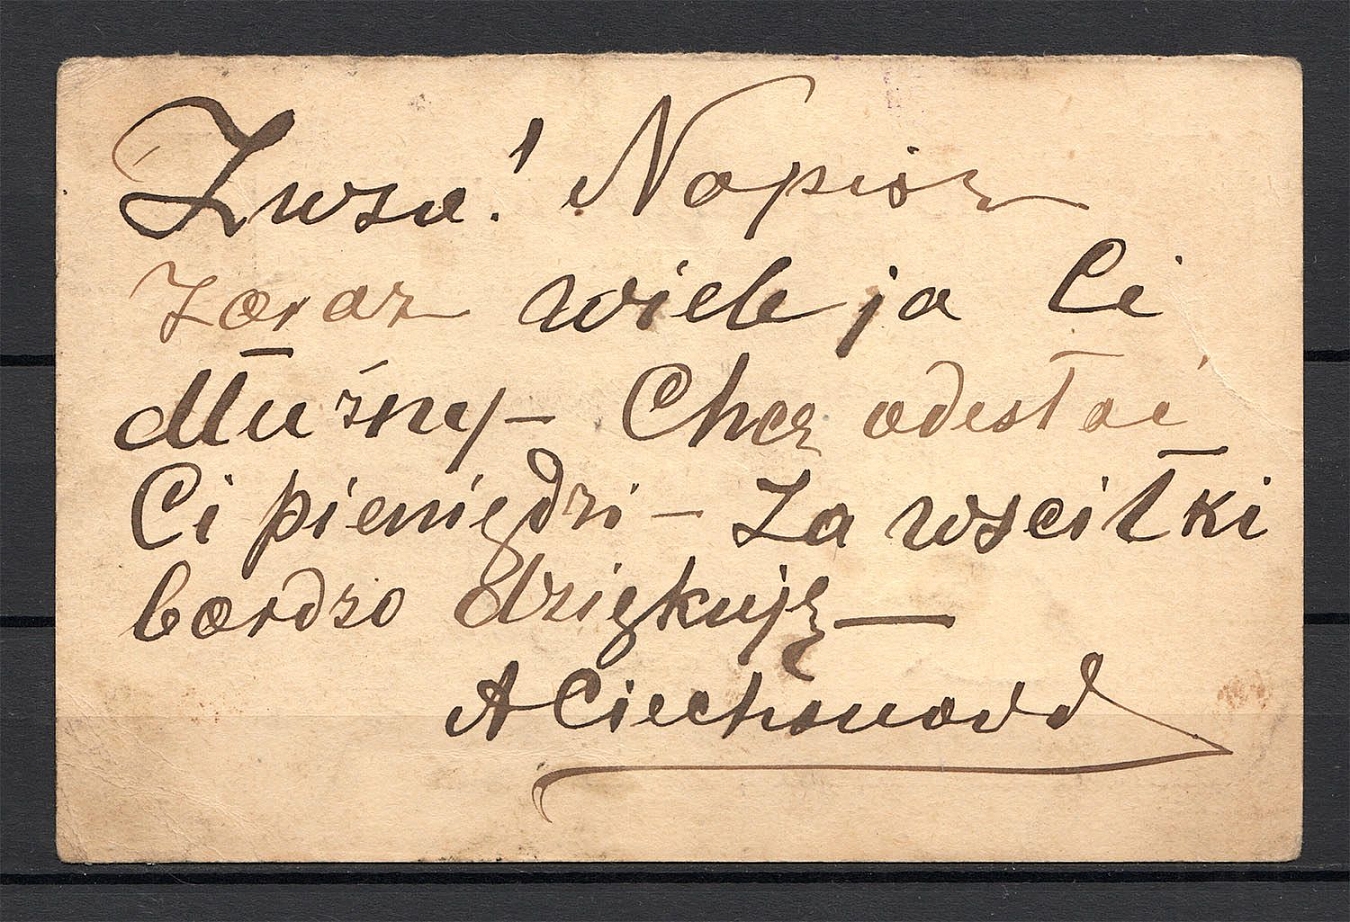 Zuzo! Napisz
zaraz wiele ja Ci
dłużny — Chcę odesłać
Ci pieniędzi — Za wsciłki
bardzo dziękuję —
A Ciechanowi